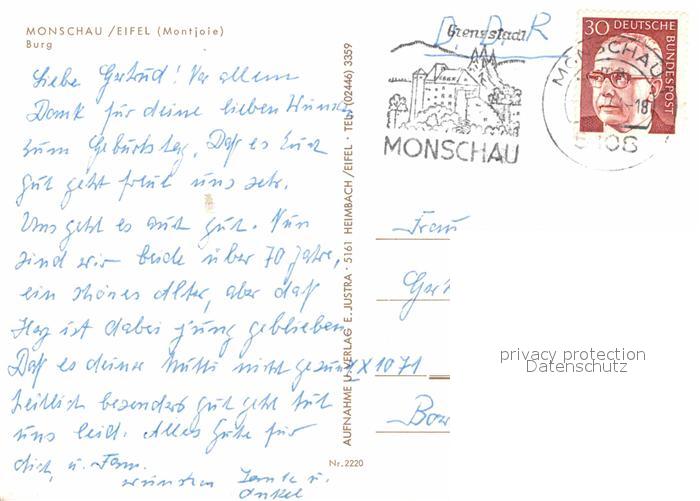 MONSCHAU /EIFEL (Montjoie)
Burg
Liebe Gertrud! Vor allem
Dank für deine lieben Wünsche
zum Geburtstag. Daß es Euch
gut geht freut uns sehr.
Uns geht es auch gut. Nun
sind wir beide über 70 Jahre,
ein schönes Alter, aber das
Herz ist dabei jung geblieben.
Daß es deiner Mutti nicht gesund
heitlich besonders gut geht tut
uns leid. Alles Gute für
dich, u. Fam.
wünschen Tante u.
Onkel
AUFNAHME U. VERLAG E. JUSTRA · 5161 HEIMBACH /EIFEL · TEL. (02446) 3359
Nr. 2220
D. D. R
Grenzstadt
MONSCHAU
MONSCHAU
-18
5108
30 DEUTSCHE BUNDESPOST
Frau
privacy protection
Datenschutz